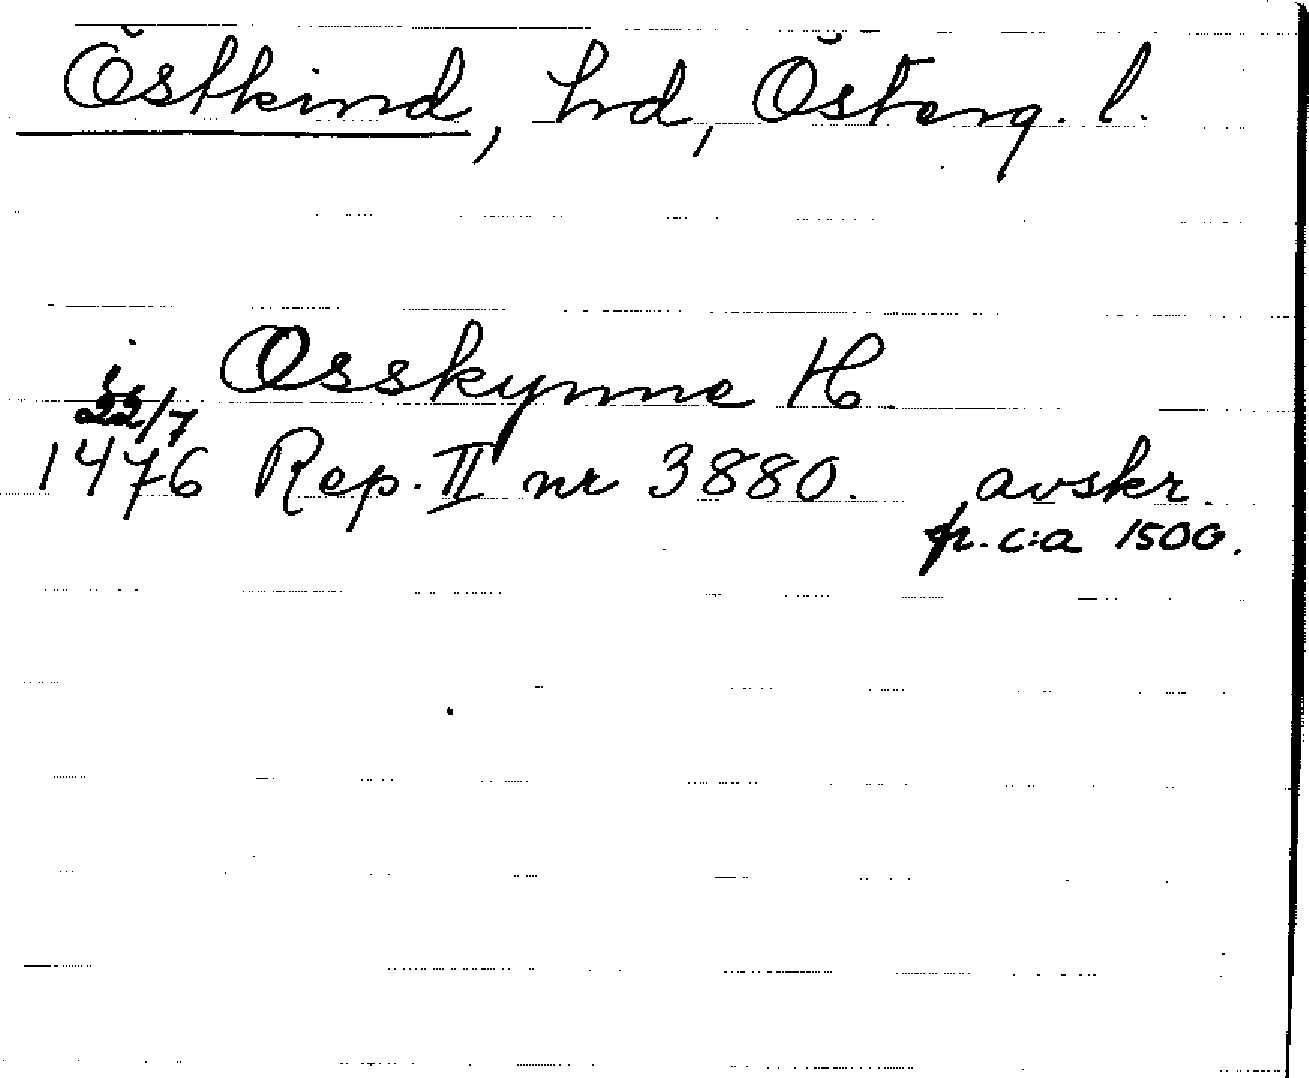 Östkind, hd, Österg. l.
i Osskynne H
22/7
1476 Rep. II nr 3880. avskr.
p. c:a 1500.